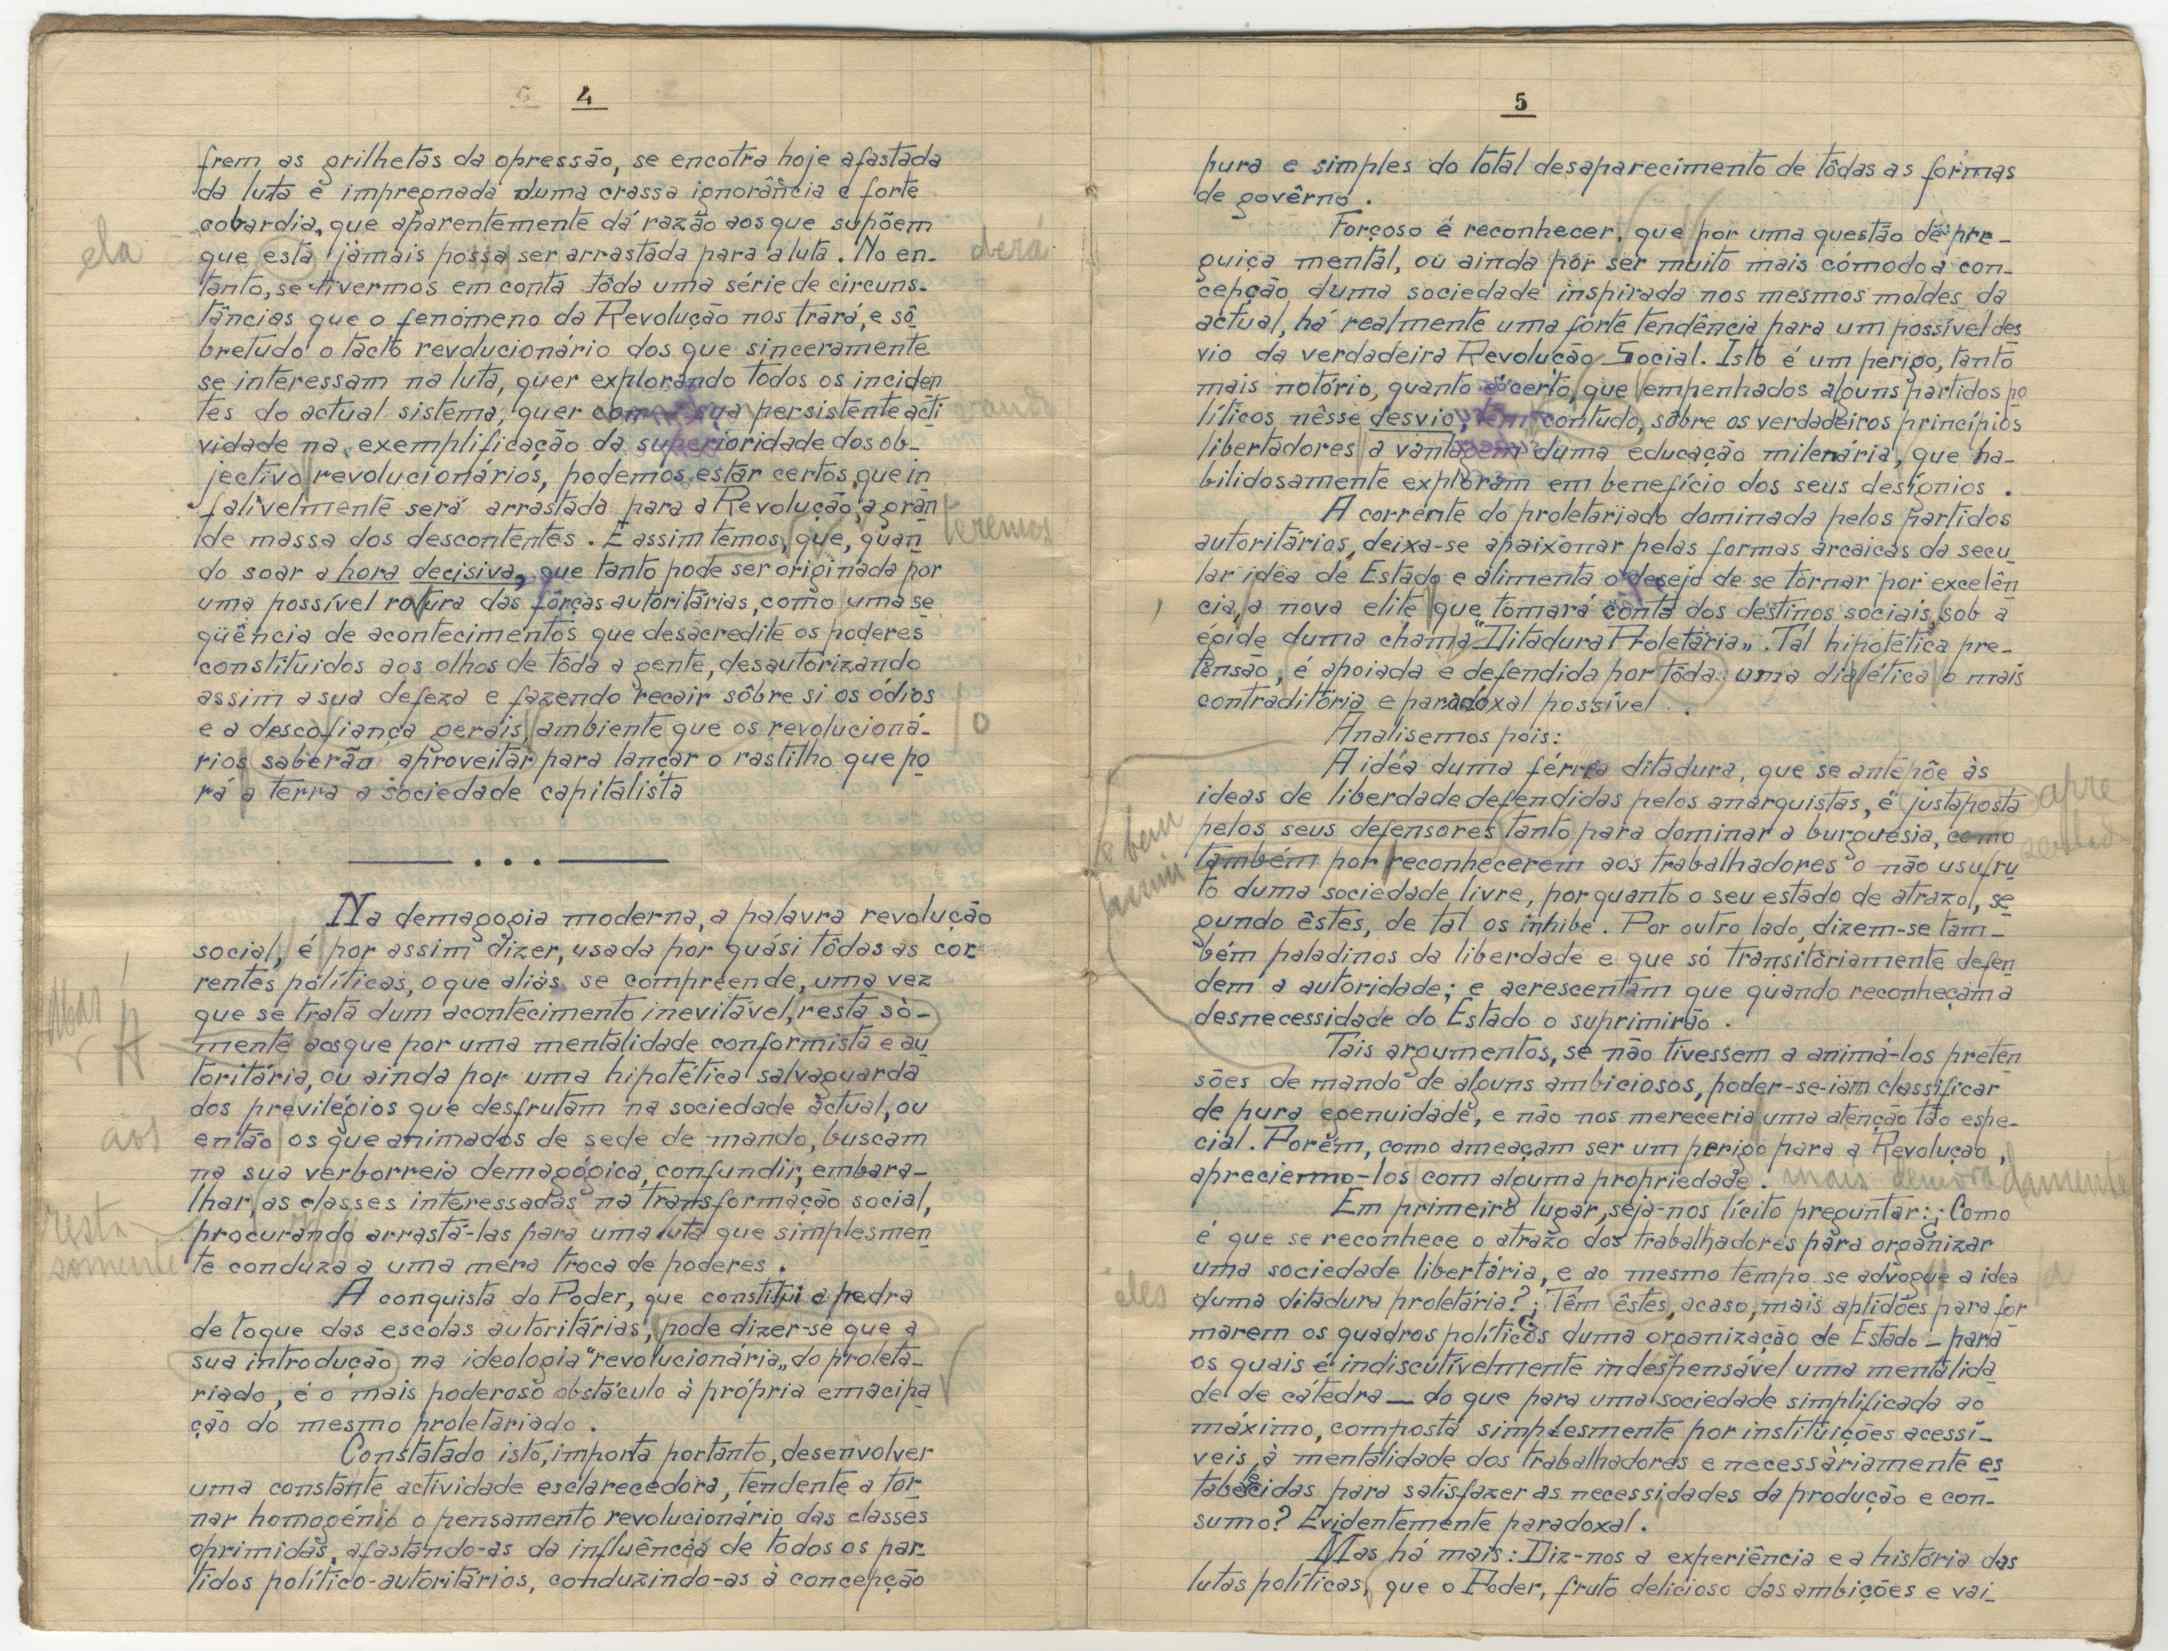 4
frem as grilhetas da opressão, se encotra hoje afastada
da luta e impregnada duma crassa ignorância e forte
cobardia, que aparentemente dá razão aos que supõem
ela
que esta jàmais possa ser arrastada para a luta. No en-
derá
tanto, se tivermos em conta tôda uma série de circuns-
tâncias que o fenómeno da Revolução nos trará, e sô
bretudo o tacto revolucionário dos que sinceramente
se interessam na luta, quer explorando todos os inciden
tes do actual sistema, quer com a sua persistente acti
vidade na exemplificação da superioridade dos ob-
jectivo revolucionários, podemos estar certos, que in
falivelmente será arrastada para a Revolução, a gran
de massa dos descontentes. E assim temos, que, quan
teremos
do soar a hora decisiva, que tanto pode ser originada por
uma possível rotura das fôrças autoritárias, como uma se
qüência de acontecimentos que desacredite os poderes
constituidos aos olhos de tôda a gente, desautorizando
assim a sua defeza e fazendo recair sôbre si os ódios
e a descofiança gerais, ambiente que os revolucioná-
o
rios saberão aproveitar para lançar o rastilho que po
rá a terra a sociedade capitalista
Na demagogia moderna, a palavra revolução
social, é por assim dizer, usada por quási tôdas as cor
rentes políticas, o que aliás se compreende, uma vez
Mas
que se trata dum acontecimento inevitável, resta sò-
mente aos que por uma mentalidade conformista e au
toritária, ou ainda por uma hipotética salvaguarda
dos previlégios que desfrutam na sociedade actual, ou
aos
então os que animados de sede de mando, buscam
na sua verborreia demagógica, confundir, embara-
lhar, as classes interessadas na transformação social,
resta
procurando arrastá-las para uma luta que simplesmen
somente
te conduza a uma mera troca de poderes.
A conquista do Poder, que constitui a pedra
de toque das escolas autoritárias, pode dizer-se que a
sua introdução na ideologia "revolucionária" do proleta-
riado, é o mais poderoso obstáculo à própria emacipa
ção do mesmo proletariado.
Constatado isto, importa portanto, desenvolver
uma constante actividade esclarecedora, tendente a tor
nar homogénio o pensamento revolucionário das classes
oprimidas, afastando-as da influência de todos os par-
tidos político-autoritários, conduzindo-as à concepção
5
pura e simples do total desaparecimento de tôdas as formas
de govêrno.
Forçoso é reconhecer, que por uma questão de pre-
guiça mental, ou ainda por ser muito mais cómodo a con-
cepção duma sociedade inspirada nos mesmos moldes da
actual, há realmente uma forte tendência para um possível des
vio da verdadeira Revolução Social. Isto é um perigo, tanto
mais notório, quanto é certo, que empenhados alguns partidos po
líticos nêsse desvio, têm contudo, sôbre os verdadeiros princípios
libertadores a vantagem duma educação milenária, que ha-
bilidosamente exploram em benefício dos seus desígnios.
A corrente do proletariado dominada pelos partidos
autoritários, deixa-se apaixonar pelas formas arcaicas da secu
lar idéa de Estado e alimenta o desejo de se tornar por excelên
cia, a nova elite que tomará conta dos destinos sociais, sob a
égide duma chama "Ditadura Proletária". Tal hipotética pre-
tensão, é apoiada e defendida por tôda uma dialética o mais
contraditória e paradóxal possível.
Analisemos pois:
A idéa duma férrea ditadura, que se antepõe às
ideas de liberdade defendidas pelos anarquistas, é justaposta
apre
pelos seus defensores tanto para dominar a burguesia, como
se bem
também por reconhecerem aos trabalhadores o não usufru
to duma sociedade livre, porquanto o seu estado de atrazo, se
gundo êstes, de tal os inhibe. Por outro lado, dizem-se tam-
bém paladinos da liberdade e que só transitòriamente defen
dem a autoridade; e acrescentam que quando reconheçam a
desnecessidade do Estado o suprimirão.
Tais argumentos, se não tivessem a animá-los preten
sões de mando de alguns ambiciosos, poder-se-iam classificar
de pura egenuidade, e não nos mereceria uma atenção tão espe-
cial. Porém, como ameaçam ser um perigo para a Revolução,
apreciermo-los com alguma propriedade. mais demoradamente
Em primeiro lugar, seja-nos lícito preguntar: ¿Como
é que se reconhece o atrazo dos trabalhadores para organizar
uma sociedade libertária, e ao mesmo tempo se advogue a idea
a
eles
duma ditadura proletária? ¿Têm êstes, acaso, mais aptidões para for
marem os quadros políticos duma organização de Estado - para
os quais é indiscutívelmente indespensável uma mentalida
de de cátedra - do que para uma sociedade simplificada ao
máximo, composta simplesmente por instituições acessí-
veis à mentalidade dos trabalhadores e necessàriamente es
tabecidas para satisfazer as necessidades da produção e con-
sumo? Evidentemente paradoxal.
Mas há mais: Diz-nos a experiência e a história das
lutas políticas, que o Poder, fruto delicioso das ambições e vai-